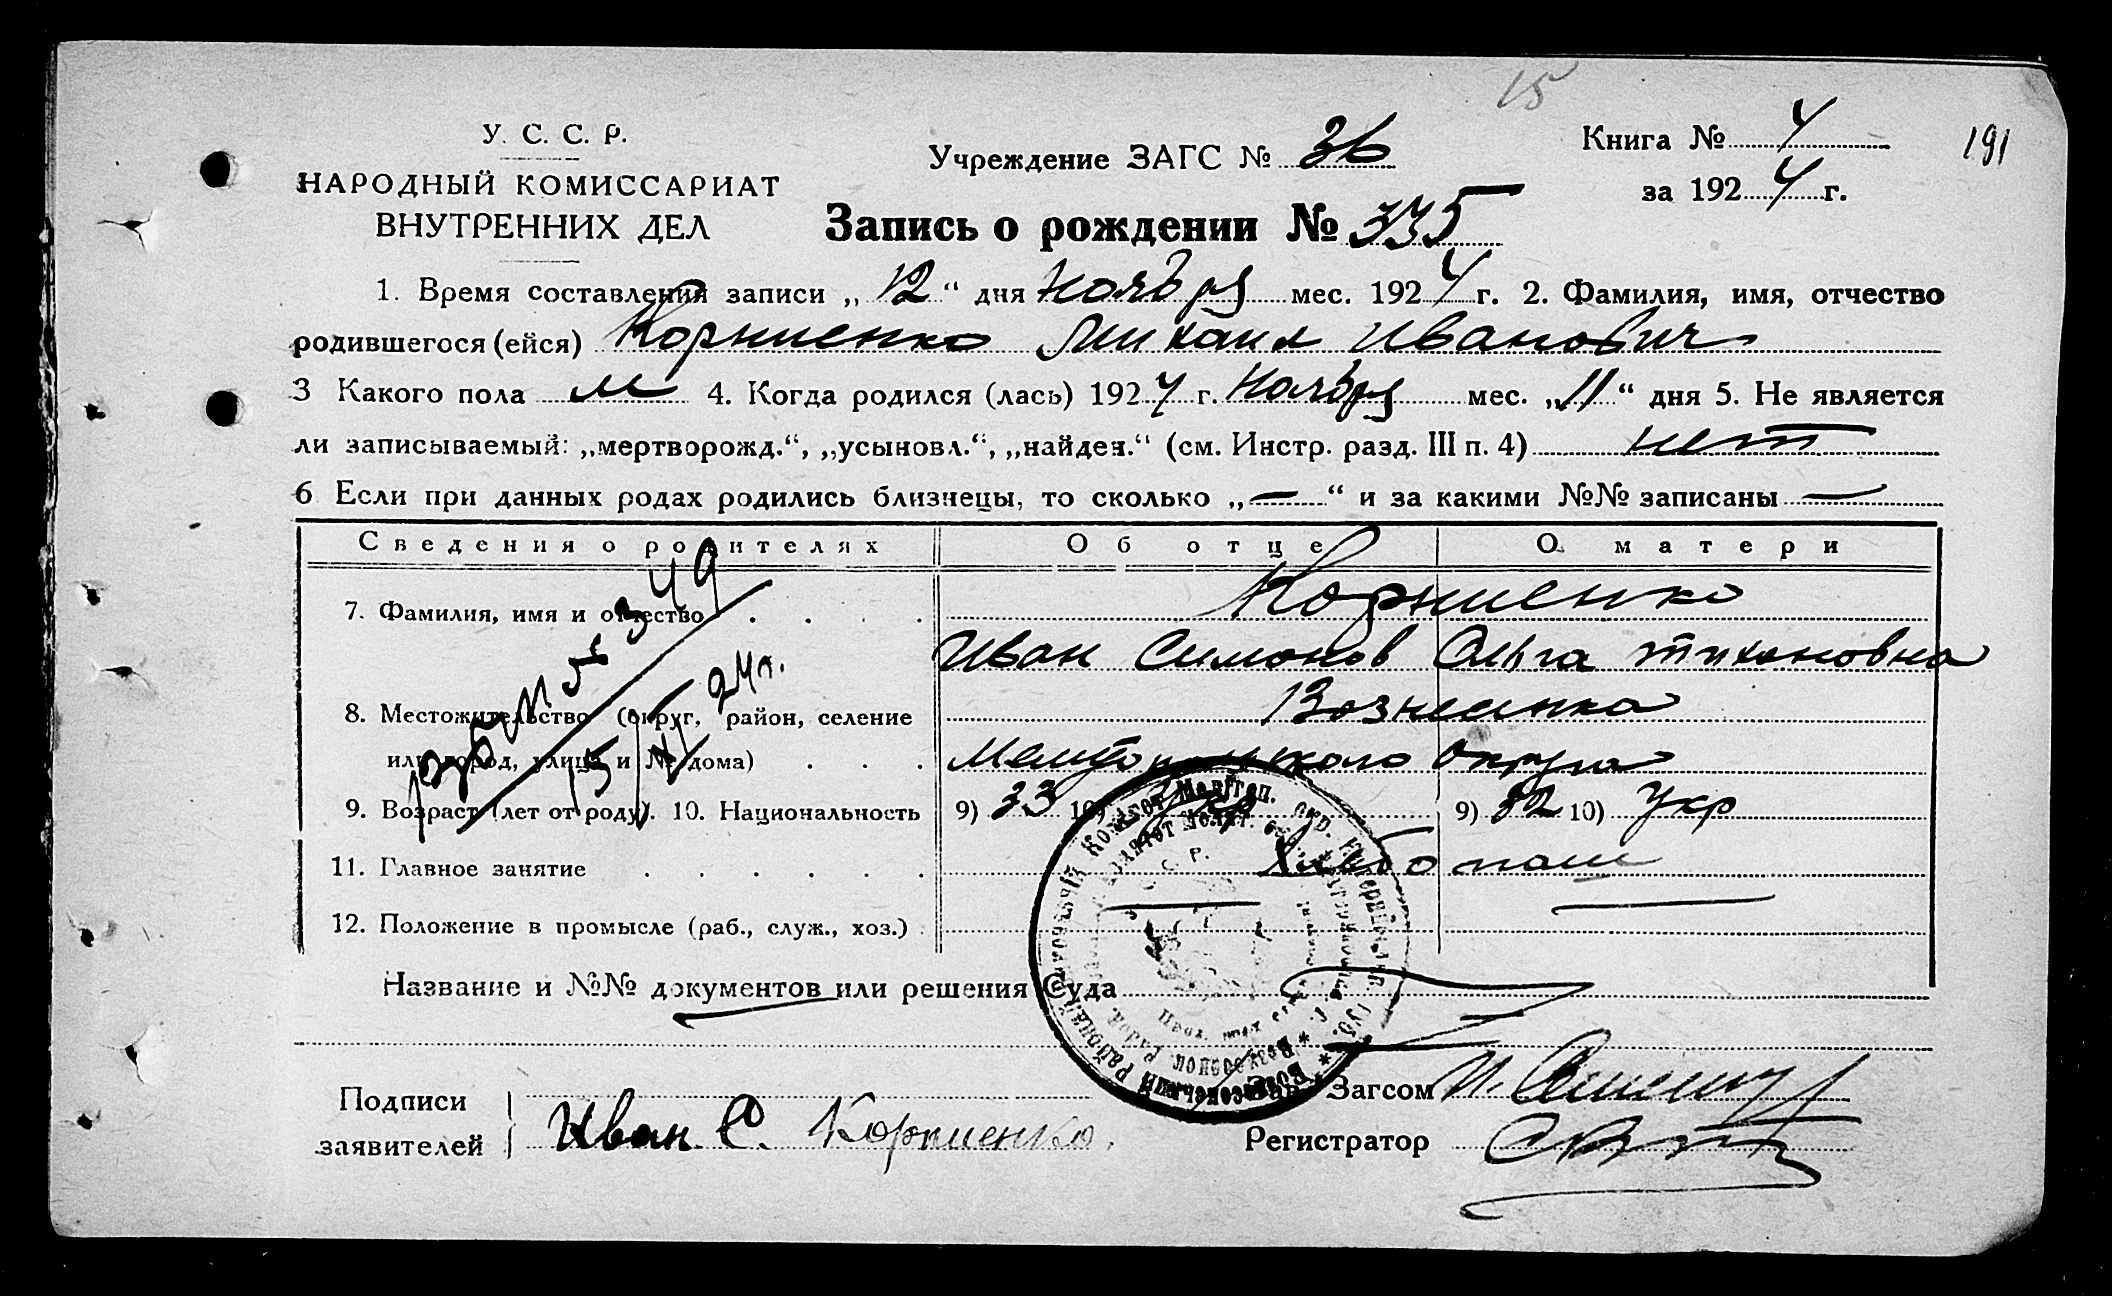 15
У. С. С. Р.
НАРОДНЫЙ КОМИССАРИАТ
ВНУТРЕННИХ ДЕЛ
Учреждение ЗАГС № 36
Книга № 4
за 1924 г.
191
Запись о рождении № 335
1. Время составления записи „12“ дня Ноября мес. 1924 г. 2. Фамилия, имя, отчество
родившегося (ейся) Корниенко Михаил Иванович
3 Какого пола м 4. Когда родился (лась) 1924 г. Ноября мес. „11“ дня 5. Не является
ли записываемый: „мертворожд.“, „усыновл.“, „найден.“ (см. Инстр. разд. III п. 4) нет
6 Если при данных родах родились близнецы, то сколько „—“ и за какими №№ записаны —
Сведения о родителях Об отце О матери
7. Фамилия, имя и отчество Корниенко
Иван Симонов Ольга Тихоновна
8. Местожительство (округ, район, селение Вознесенка
или город, улица и № дома) Мелитопольского округа
9. Возраст (лет от роду). 10. Национальность 9) 33 10) Укр 9) 32 10) Укр
11. Главное занятие Хлебопаш
12. Положение в промысле (раб., служ., хоз.)
349
15/XI 24 г.
Название и №№ документов или решения Суда
Зав. Загсом И.
Подписи
заявителей Иван С. Корниенко.
Регистратор